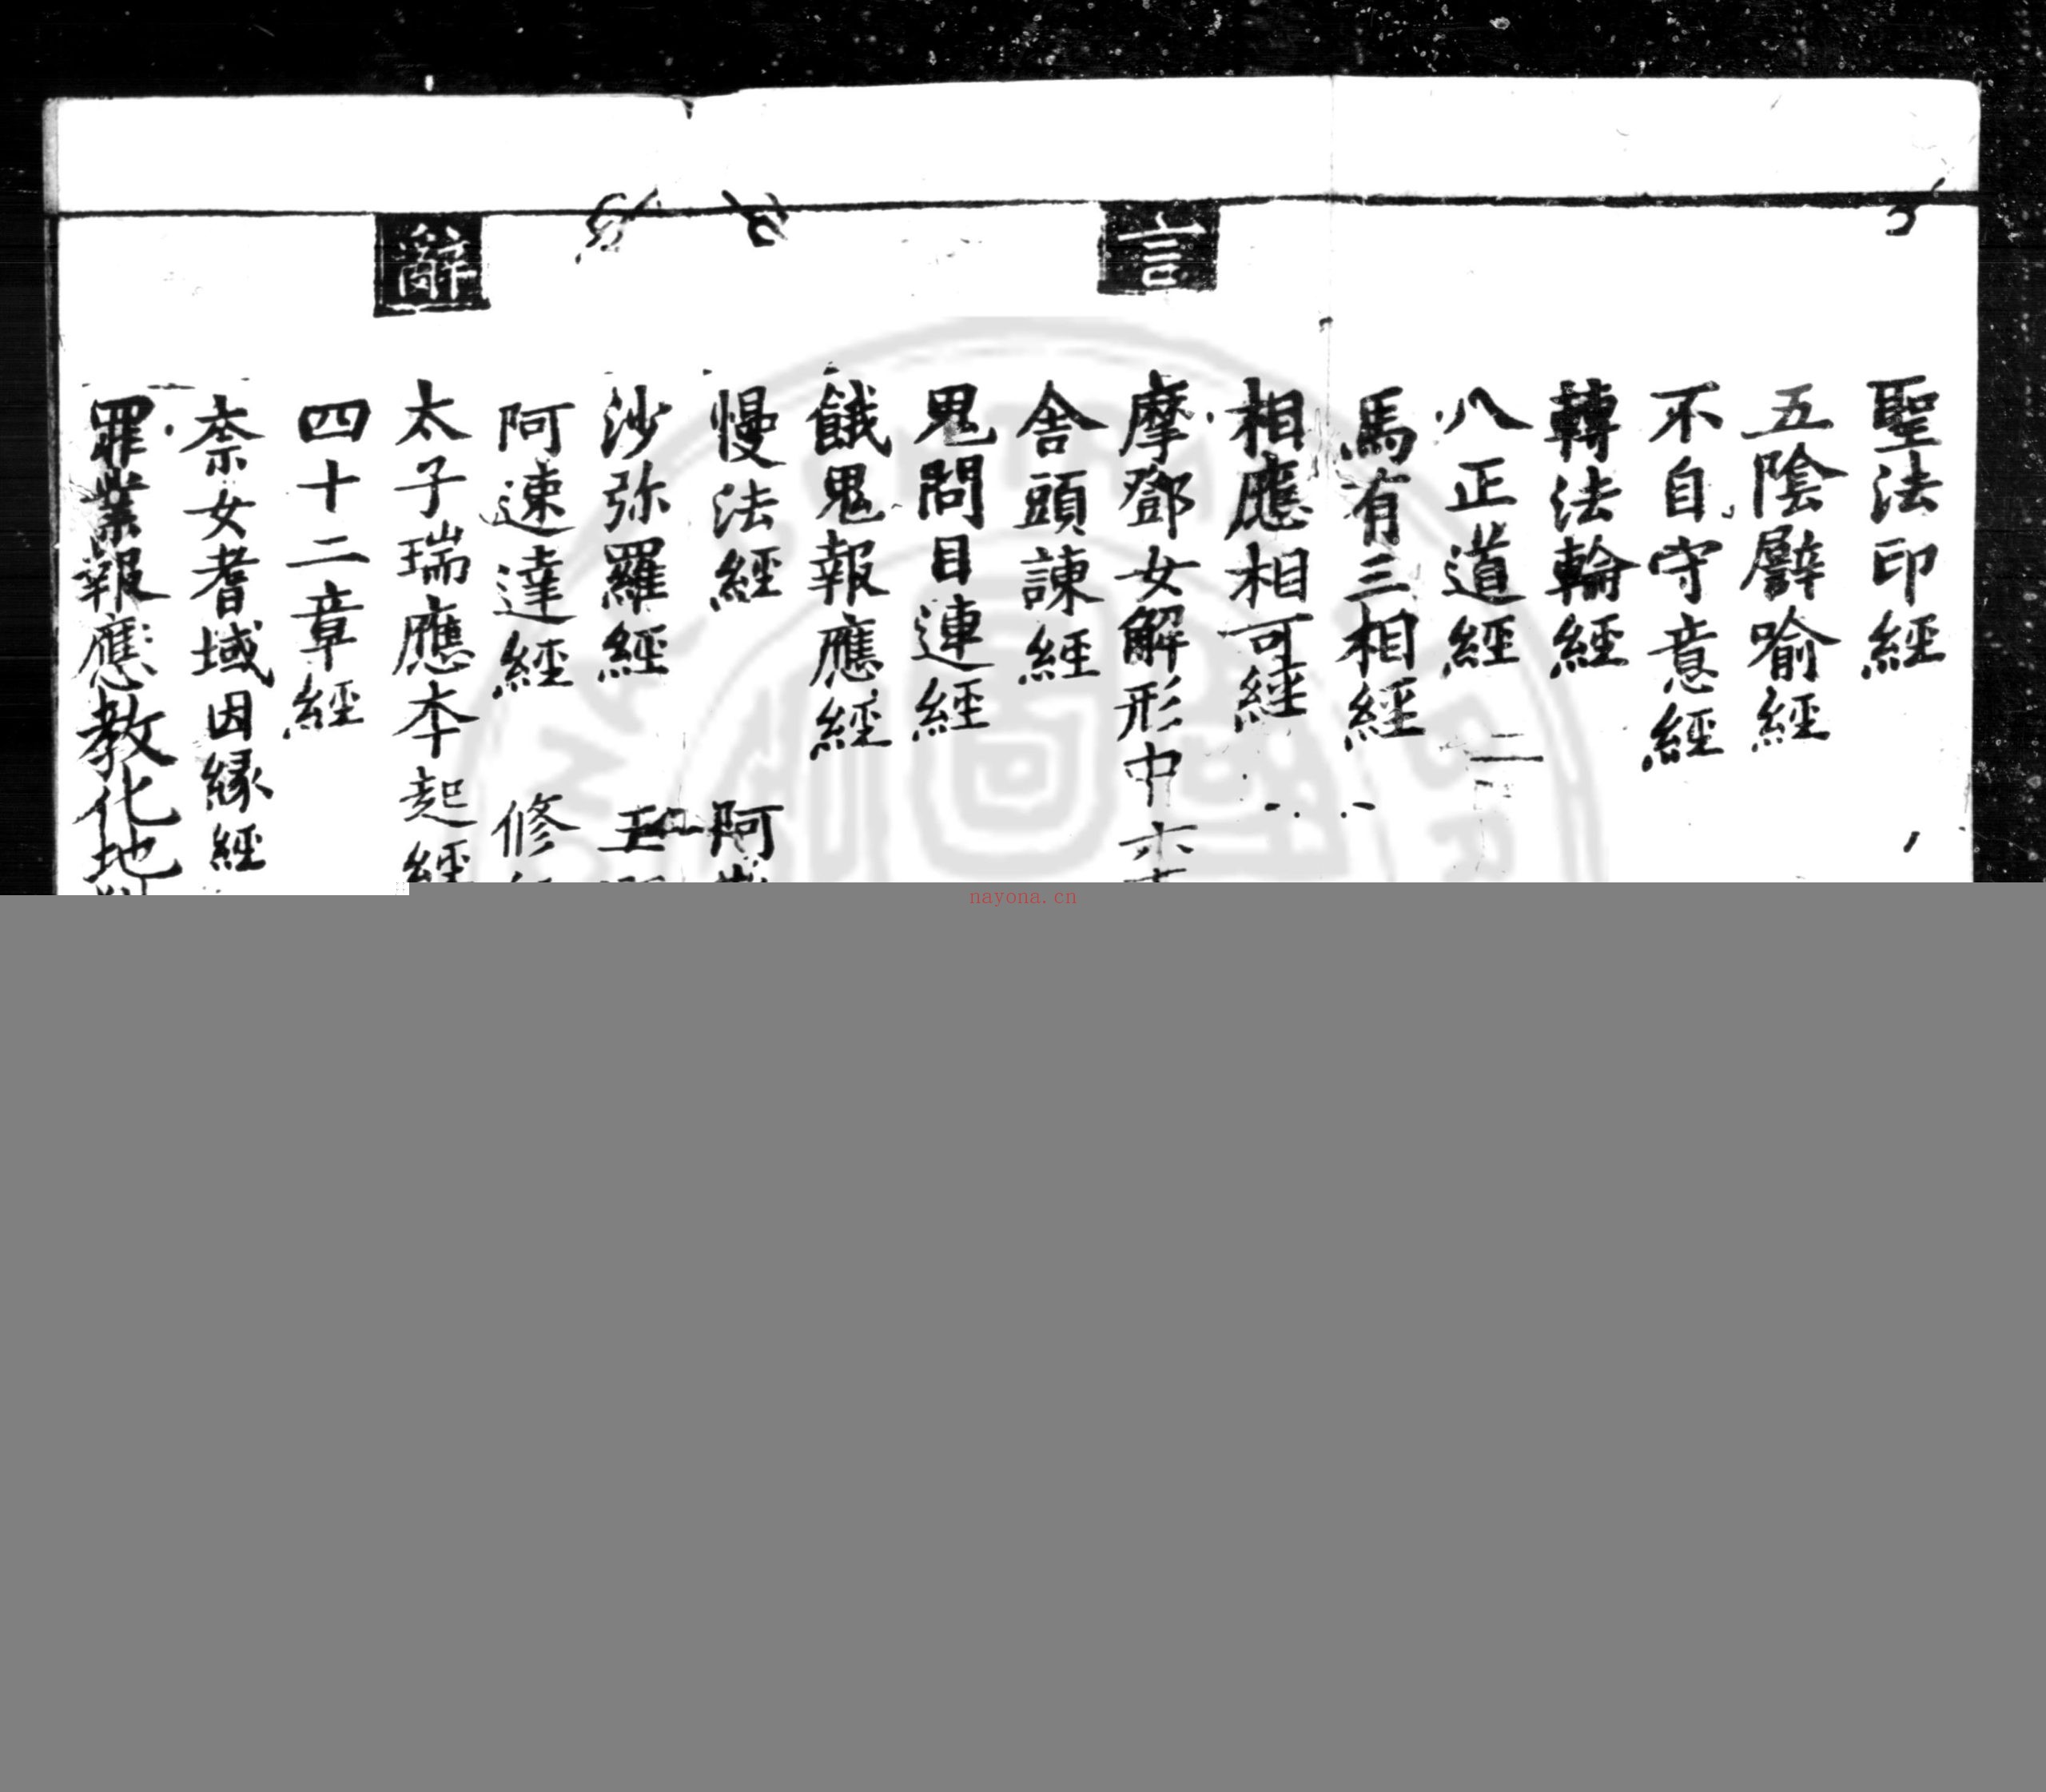 聖法印經
五陰譬喻經
不自守意經
轉法輪經
八正道經
馬有三相經
相應相可經
言
摩鄧女解形中六
舍頭諫經
鬼問目連經
餓鬼報應經
慢法經 阿
沙弥羅經 玉
阿速達經 修
辭
太子瑞應本起經
四十二章經
柰女耆域因縁經
罪業報應教化地
nayona.cn